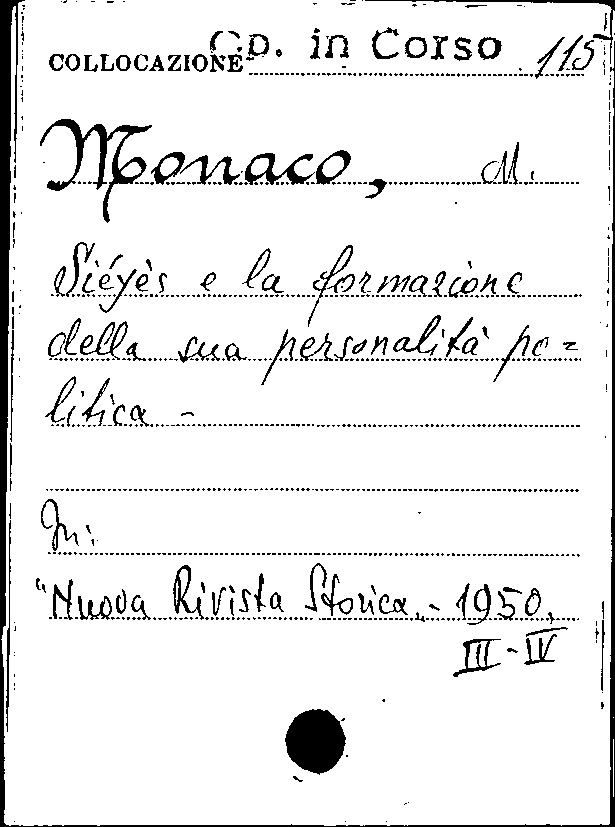 COLLOCAZIONE Op. in Corso 115
Monaco, M.
Siéyès e la formazione
della sua personalità po=
litica -
In:
"Nuova Rivista Storica„ - 1950,
III - IV